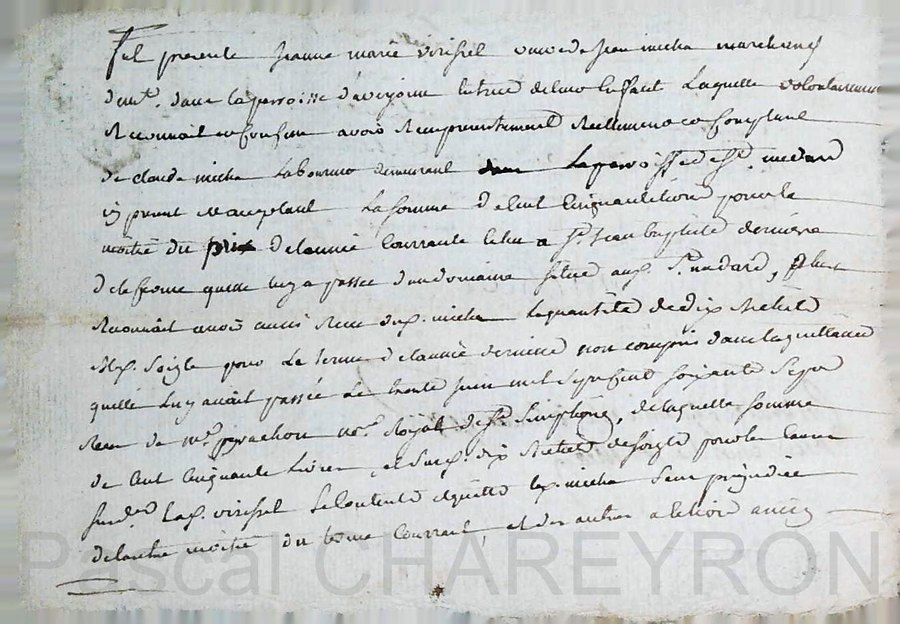 Fut presente Jeanne marie virissel veuve de Jean micha marchand
demt. dans la parroisse d'aveyzieu tutrice de leurs Enfants Laquelle volontairement
Reconnait et Confesse avoir Reçu presentement Reellement et Comptant
de claude micha Laboureur demeurant dans La parroisse de St. medard
icy present acceptant La somme de Cent Cinquante livres pour la
moitié du prix de l'année Courrante Echu a St. Jean baptiste derniere
de la ferme quelle luy a passée d'un domaine situé aud. St. medard,
Reconnait avoir aussi Reçu dud. micha La quantité de dix Metiers
bled Soigle pour Le terme de l'année derniere non compris dans la quittance
quelle Luy avoit passée Le trente Juin mil Sept Cent soixante Sept
Reçu de Me. pyrachon nre. Royal de St. Simphorien, de laquelle somme
de Cent Cinquante Livres et Susd. dix Metiers de Soigle pour les Causes
susd. Lad. virissel Se Contente et quitte led. micha Sans prejudice
de l'autre moitié du terme Courrant, et des autres a Echoir ainsy
Pascal CHAREYRON